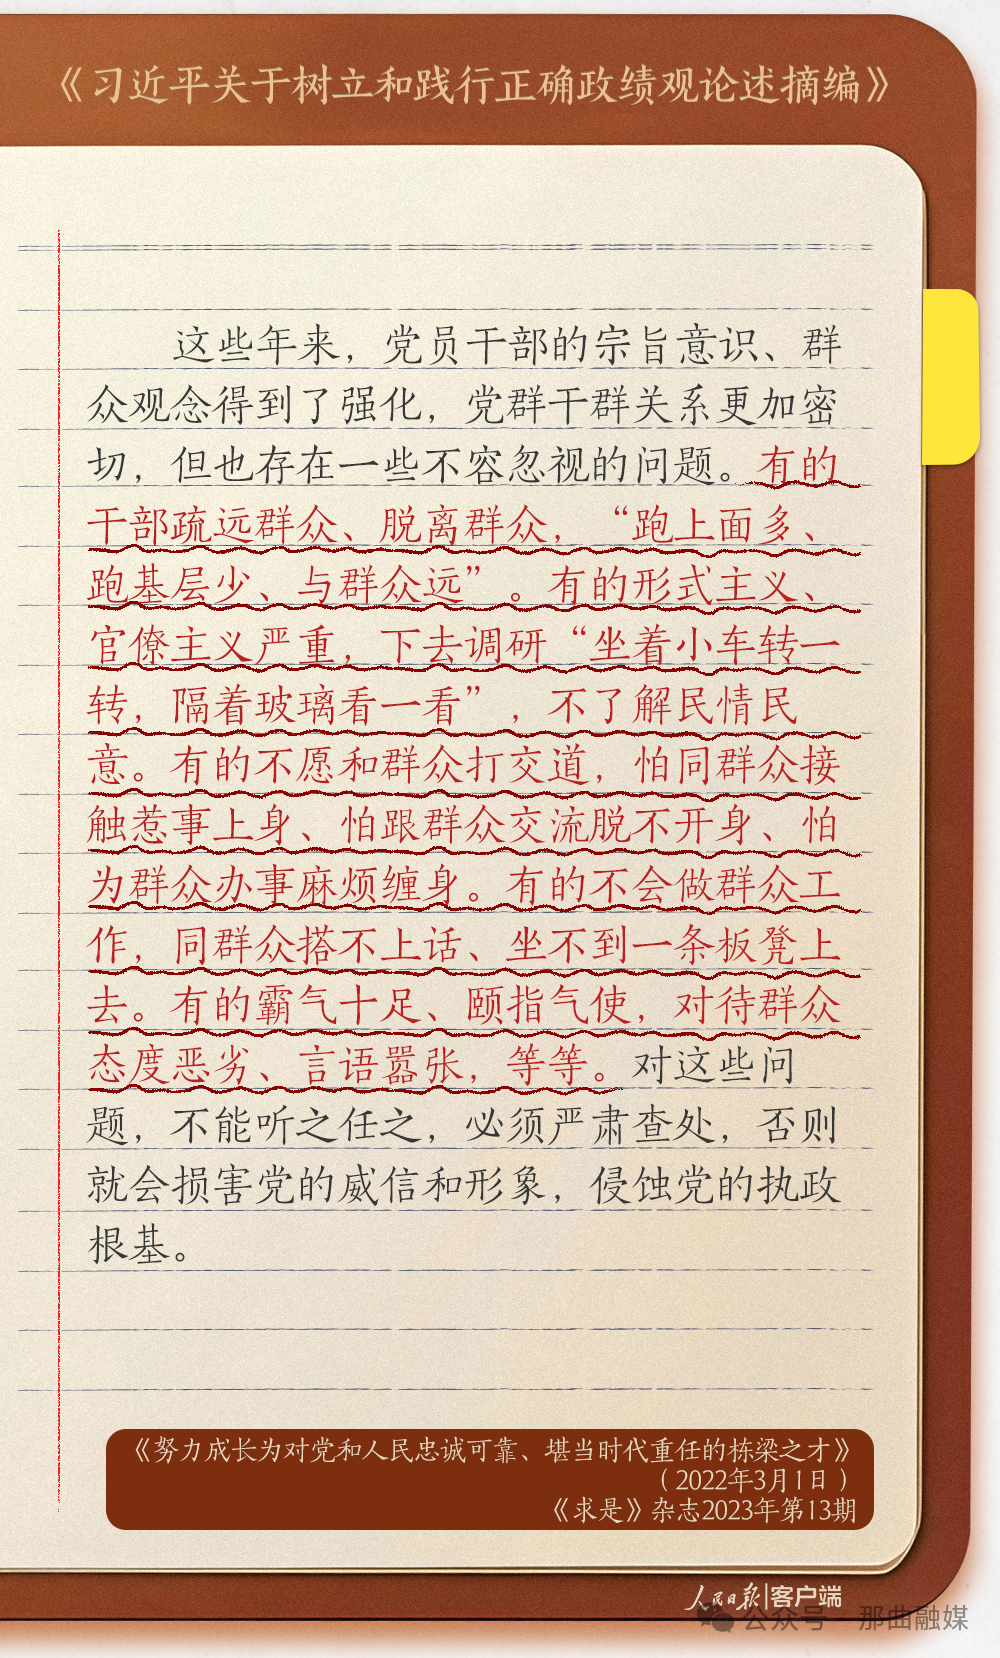 《习近平关于树立和践行正确政绩观论述摘编》
这些年来，党员干部的宗旨意识、群
众观念得到了强化，党群干群关系更加密
切，但也存在一些不容忽视的问题。有的
干部疏远群众、脱离群众，“跑上面多、
跑基层少、与群众远”。有的形式主义、
官僚主义严重，下去调研“坐着小车转一
转，隔着玻璃看一看”，不了解民情民
意。有的不愿和群众打交道，怕同群众接
触惹事上身、怕跟群众交流脱不开身、怕
为群众办事麻烦缠身。有的不会做群众工
作，同群众搭不上话、坐不到一条板凳上
去。有的霸气十足、颐指气使，对待群众
态度恶劣、言语嚣张，等等。对这些问
题，不能听之任之，必须严肃查处，否则
就会损害党的威信和形象，侵蚀党的执政
根基。
《努力成长为对党和人民忠诚可靠、堪当时代重任的栋梁之才》
（2022年3月1日）
《求是》杂志2023年第13期
人民日报|客户端
公众号·那曲融媒